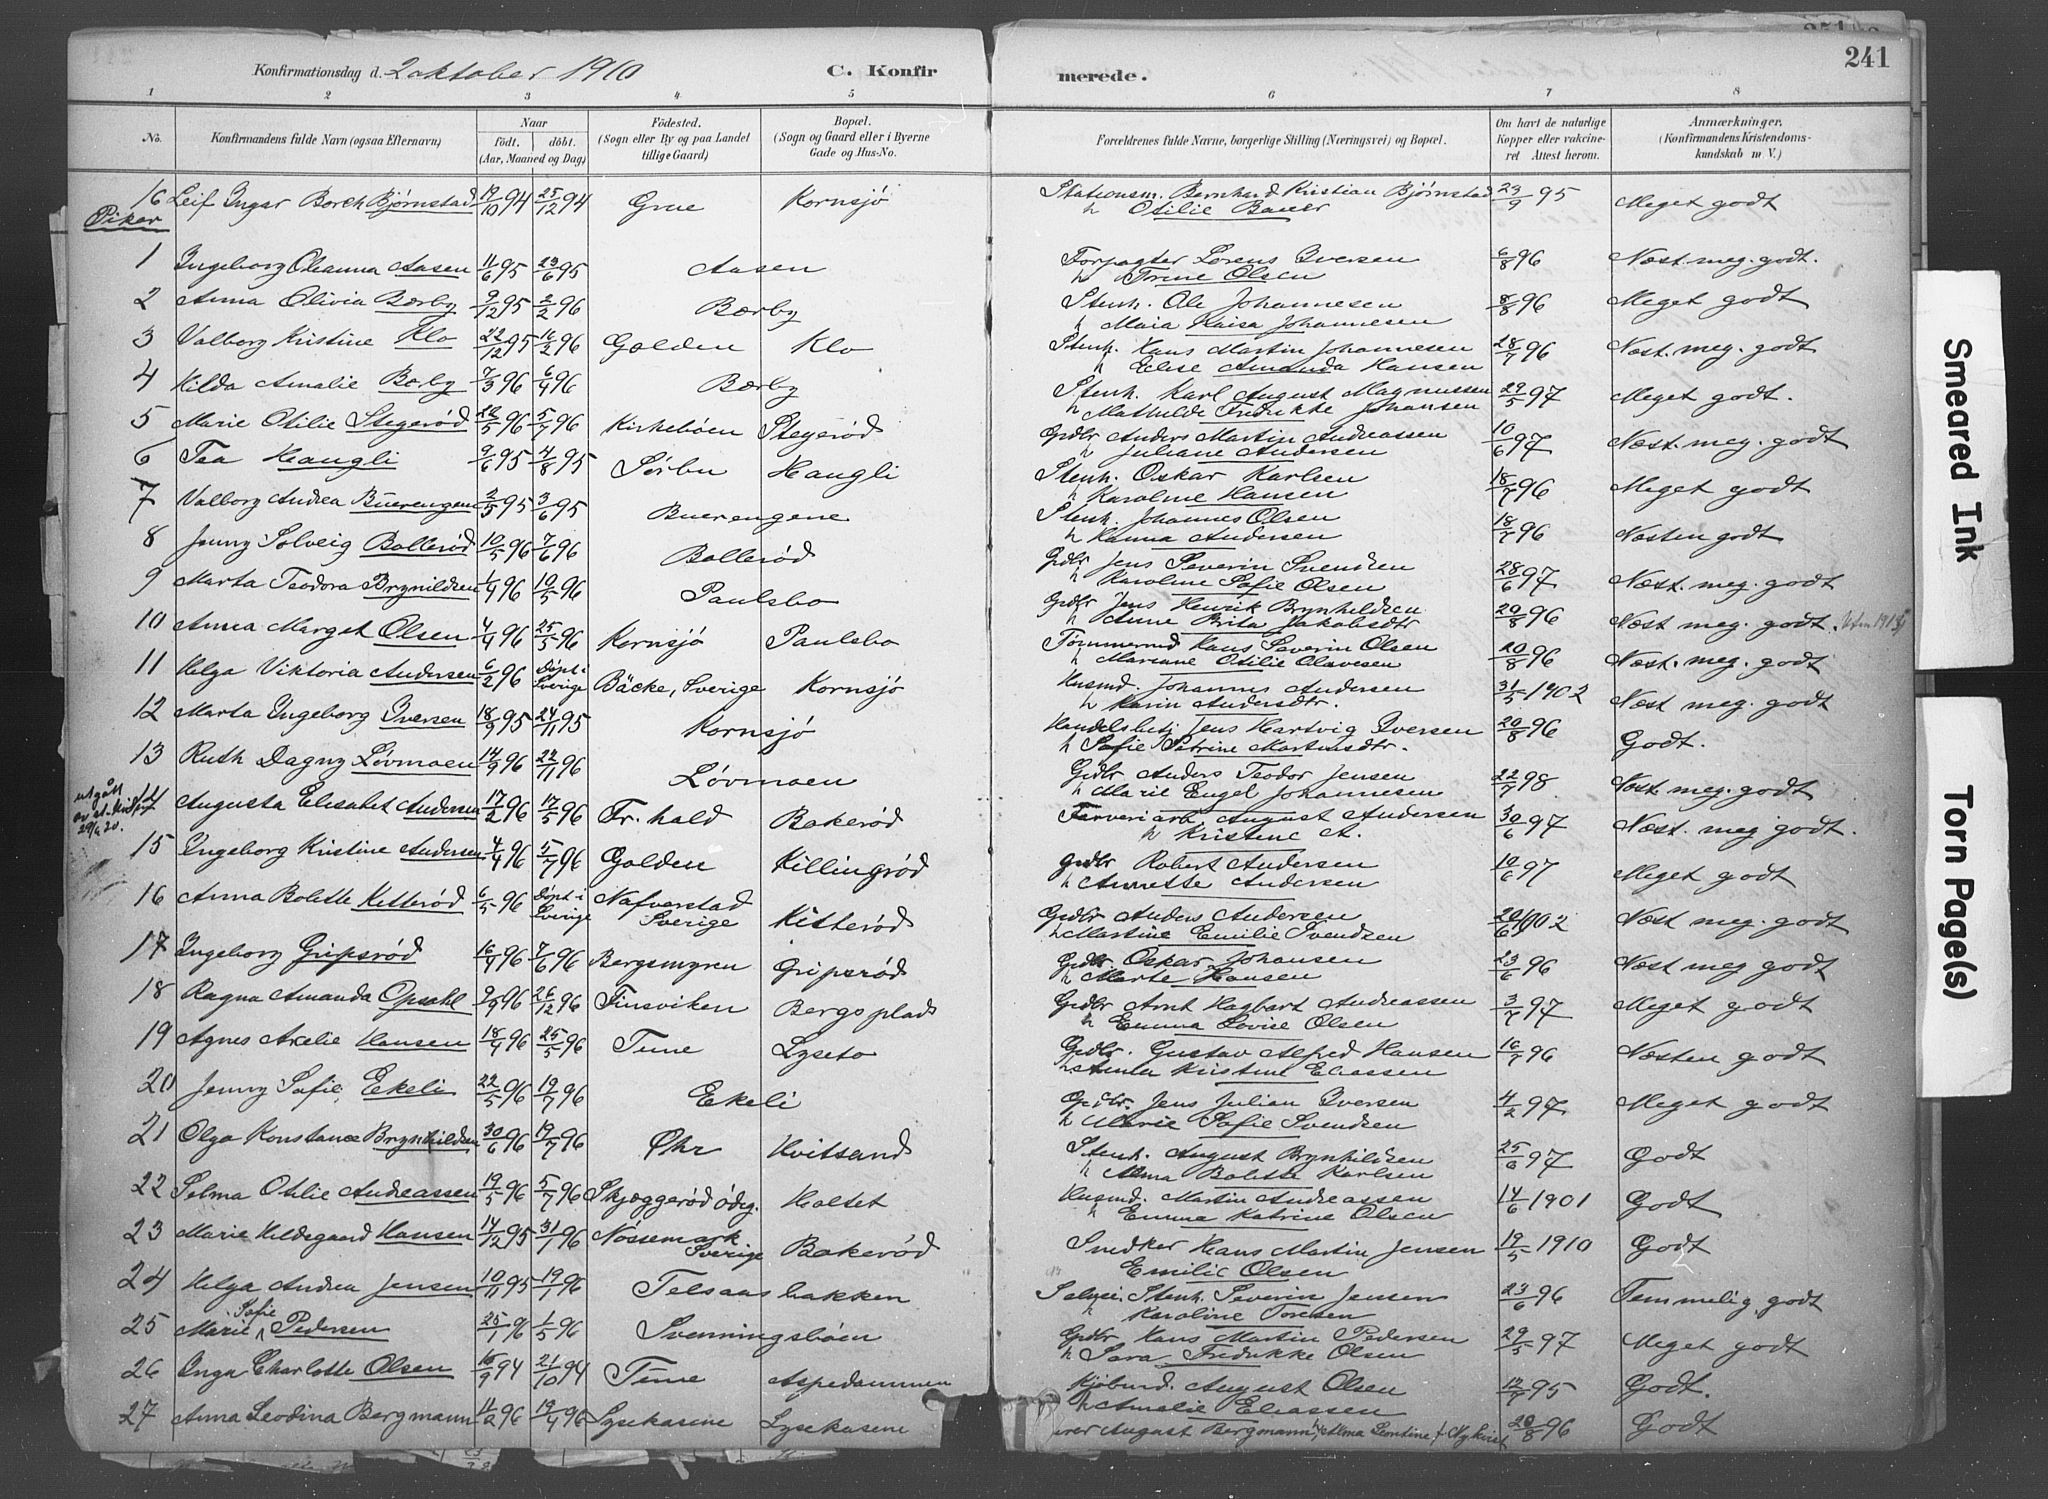 Konfirmationsdag d. 2 oktober 1910 C. Konfirmerede. 241
1 2 3 4 5 6 7 8
No. Konfirmandens fulde Navn (ogsaa Efternavn) Naar født. døbt. (Aar, Maaned og Dag) Födested. (Sogn eller By og paa Landet tillige Gaard) Bopæl. (Sogn og Gaard eller i Byerne Gade og Hus-No. Forældrenes fulde Navne, borgerlige Stilling (Næringsvei) og Bopæl. Om havt de naturlige Kopper eller vakcineret Attest herom. Anmærkninger. (Konfirmandens Kristendomskundskab m V.)
16 Leif Ingar Borch Bjørnstad 19/10 94 25/12 94 Grue Kornsjø Stationsm. Bernhard Kristian Bjørnstad h Otilie Bauer 23/9 95 Meget godt
Piker
1 Ingeborg Oleanna Aasen 11/6 95 23/6 95 Aasen Forpagter Lorens Iversen h Trine Olsen 6/8 96 Næst meg. godt.
2 Anna Olivia Bærby 9/12 95 2/2 96 Bærby Stenh. Ole Johannesen h Maia Kaisa Johannesen 8/8 96 Meget godt
3 Valborg Kristine Klo 22/12 95 16/2 96 Galden Klo Stenh. Hans Martin Johannesen h Elise Amanda Hansen 28/7 96 Næst. meg. godt
4 Hilda Amalie Bærby 7/3 96 6/4 96 Bærby Stenh. Karl August Magnussen h Mathilde Fredrikke Johansen 29/5 97 Meget godt.
5 Marie Otilie Stegerød 22/5 96 5/7 96 Kirkebøen Stegerød Grdbr Anders Martin Andreassen h Juliane Andersen 10/6 97 Næst. meg. godt
6 Tea Haugli 9/6 95 4/8 95 Sørbu Haugli Stenh. Oskar Karlsen h Karoline Hansen 18/7 96 Meget godt
7 Valborg Andrea Buerengene 2/5 95 3/6 95 Buerengene Stenh. Johannes Olsen h Hanna Andersen 18/7 96 Næsten godt
8 Jenny Solveig Bollerød 10/5 96 7/6 96 Bollerød Grdbr Jens Severin Svendsen h Karoline Sofie Olsen 28/6 97 Næst. meg. godt
9 Marta Teodora Brynildsen 1/4 96 10/5 96 Paulsbo Grdbr Jens Henrik Brynhildsen h Anne Brita Jakobsdtr 20/8 96 Næst meg. godt.
10 Anna Marget Olsen 4/4 96 25/5 96 Kornsjø Paulsbo Tømmermd Hans Severin Olsen h Mariane Otilie Olavesen 20/8 96 Næst. meg. godt
11 Helga Viktoria Andersen 6/2 96 Døpt i Sverige Bäcke, Sverige Kornsjø Husmd. Johannes Andersen h Karin Andersdtr. 31/5 1902 Næst meg. godt
12 Marta Ingeborg Iversen 18/9 95 24/11 95 Kornsjø Handelsbetj Jens Hartvig Iversen h Sofie Petrine Martinsdtr. 20/8 96 Godt.
13 Ruth Dagny Løvmoen 14/9 96 22/11 96 Løvmoen Grdbr Anders Teodor Jensen h Marie Engel Johannesen 22/7 98 Næst meg. godt
utgått av st.kirken 29/6 20.
14 Augusta Elisabet Andersen 17/2 96 17/5 96 Fr.hald Bakerød Farveriarb. August Andersen h Kristene A. 30/6 97 Næst. meg godt.
15 Ingeborg Kristine Andersen 4/4 96 5/7 96 Galden Killingrød Grdbr Robert Andersen h Annette Andersen 10/6 97 Meget godt
16 Anna Bolette Ketterød 6/5 96 Døpt i Sverige Nafverstad Sverige Kitterød Grdbr Anders Andersen h Martine Emilie Svendsen 20/6 1902 Næst meg. godt
17 Ingeborg Gripsrød 16/4 96 7/6 96 Bergsmyren Gripsrød Grdbr Oskar Johansen h Marte Hansen 23/6 96 Næst meg godt
18 Ragna Amanda Opsahl 9/9 96 26/12 96 Finsviken Bergs plads Grdbr Arnt Hagbart Andreassen h Emma Lovise Olsen 3/7 97 Meget godt
19 Agnes Axelie Hansen 18/4 96 25/5 96 Tune Lyseto Grdbr. Gustav Alfred Hansen h Anna Kristine Eliassen 16/7 96 Næsten godt
20 Jenny Sofie Ekeli 22/5 96 19/7 96 Ekeli Grdbr. Jens Julian Iversen h Marie Sofie Svendsen 4/2 97 Meget godt
21 Olga Konstance Brynhildsen 30/6 96 19/7 96 Øhr Hvitsand Stenh. August Brynhildsen h Anna Bolette Karlsen 25/6 97 Godt
22 Selma Otilie Andreassen 19/5 96 5/7 96 Skjæggerød ödeg. Holtet Husmd. Martin Andreassen h Emma Katrine Olsen 14/6 1901 Godt
23 Marie Hildegaard Hansen 14/12 95 31/1 96 Nössemark Sverige Bakerød Snedker Hans Martin Jensen Emilie Olsen 19/5 1910 Godt
24 Helga Andrea Jensen 10/11 95 19/1 96 Telsaasbakken Stenh. Severin Jensen h Karoline Toresen 23/6 96 Temmelig godt
25 Marie Sofie Pedersen 25/1 96 1/5 96 Svenningsbøen Grdbr Hans Martin Pedersen h Sara Fredrikke Olsen 29/5 97 Meget godt
26 Inga Charlotte Olsen 15/9 94 21/10 94 Tune Aspedammen Kjøbmd. August Olsen h Amalie Eliassen 12/7 95 Godt.
27 Anna Leodina Bergmann 11/2 96 19/4 96 Lysekasene Lysekasene August Bergmann, h Alma Leontine f. Nykvist 20/8 96 Godt
Smeared Ink
Torn Page(s)